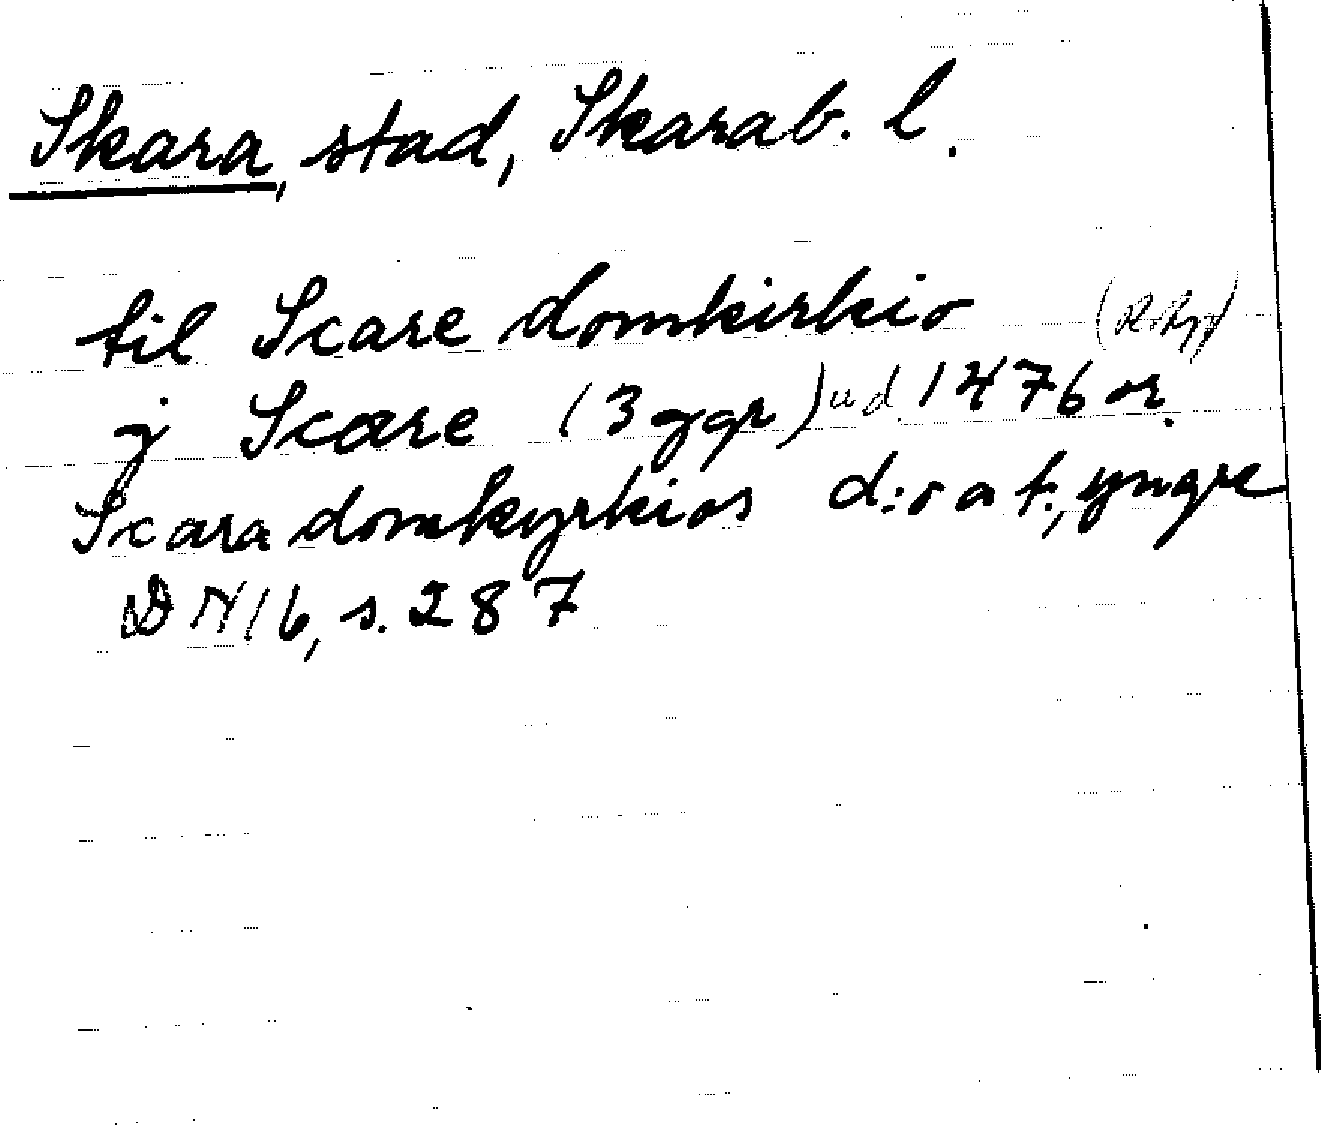 Skara, stad, Skarab. l.
til Scare domkirkio
j Scare (3 ggr) u d. 1476 or.
Scara domkyrkios d:o a t., yngre
DN 16, s. 287